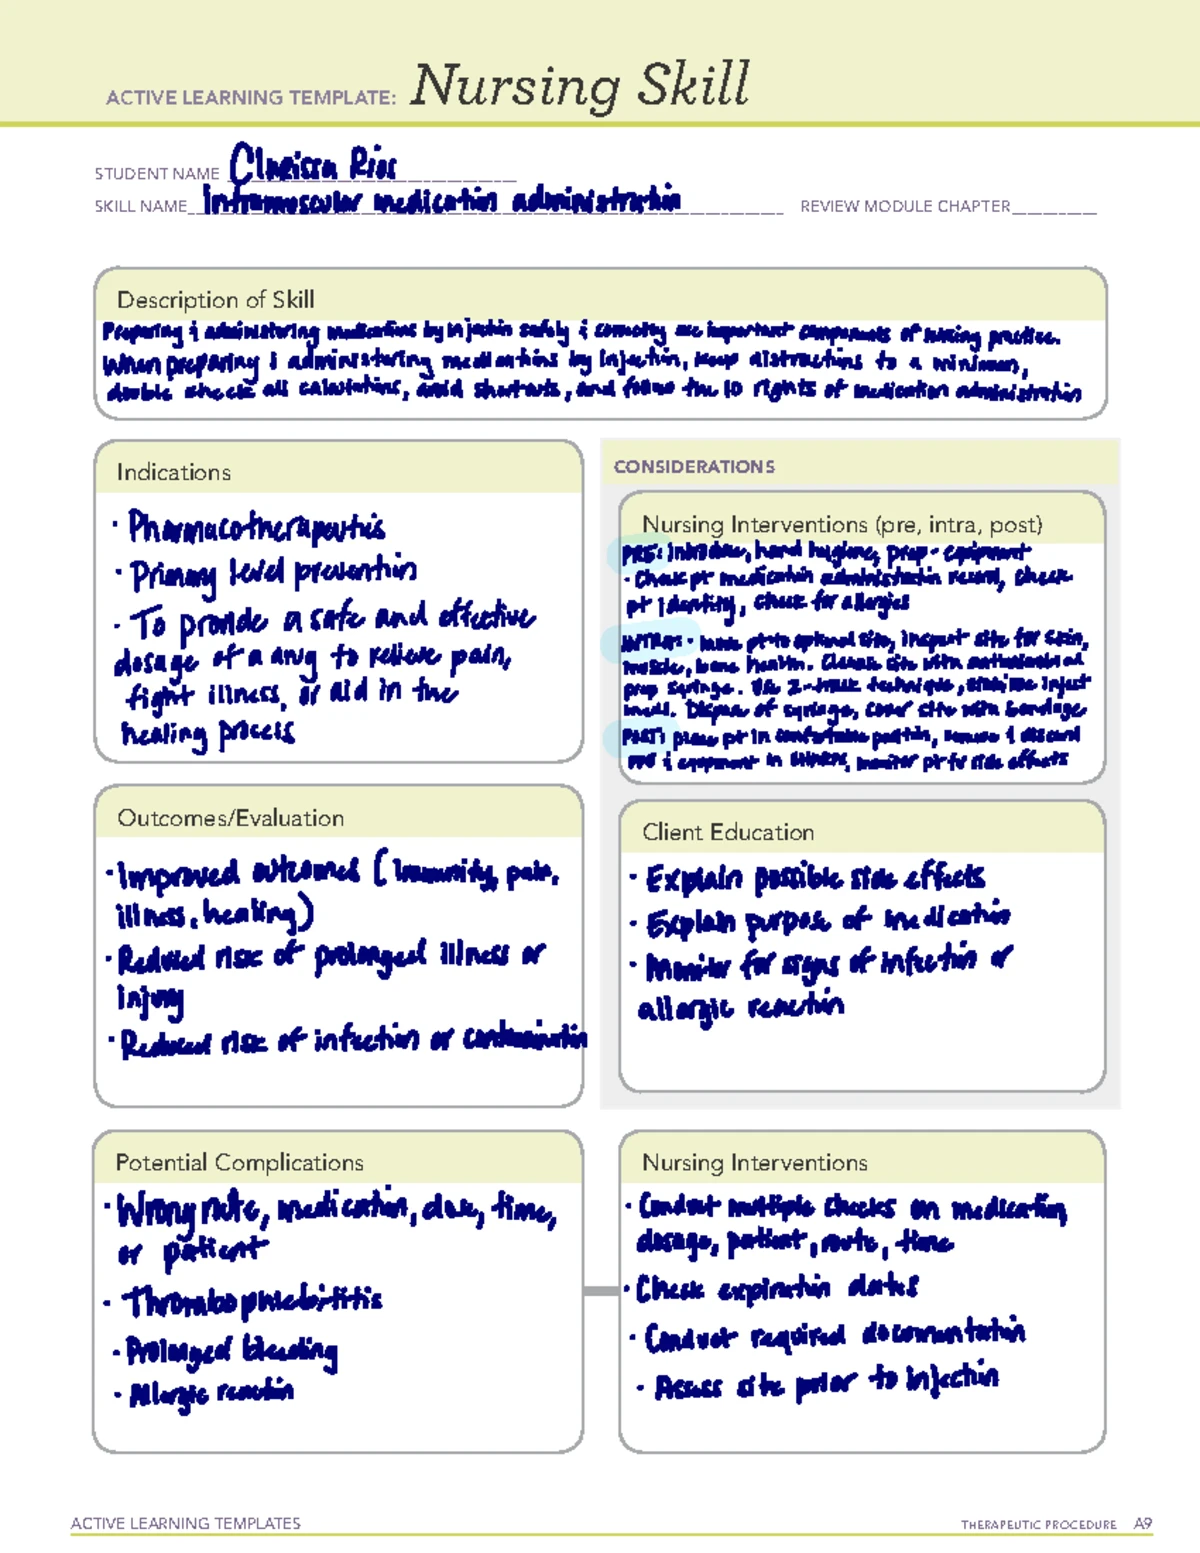 ACTIVE LEARNING TEMPLATE: Nursing Skill
STUDENT NAME Clarissa Rios
SKILL NAME Intramuscular medication administration REVIEW MODULE CHAPTER
Description of Skill
Preparing & administering medications by injection safely & correctly are important components of nursing practice.
When preparing & administering medications by injection, keep distractions to a minimum,
double check all calculations, avoid shortcuts, and follow the 10 rights of medication administration
Indications
· Pharmacotherapeutics
· Primary level prevention
· To provide a safe and effective
dosage of a drug to relieve pain,
fight illness, or aid in the
healing process
CONSIDERATIONS
Nursing Interventions (pre, intra, post)
PRE: Introduce, hand hygiene, prep equipment
· Check pt medication administration record, check
pt identity, check for allergies
INTRA: · pt to optimal site, inspect site for skin,
muscle, bone health. Cleanse site with and
prep syringe. Use Z-track technique, inject
meds. Dispose of syringe, cover site with bandage
POST: place pt in comfortable position, remove & discard
PPE & equipment in , monitor pt for side effects
Outcomes/Evaluation
· Improved outcomes (immunity, pain,
illness, healing)
· Reduced risk of prolonged illness or
injury
· Reduced risk of infection or contamination
Client Education
· Explain possible side effects
· Explain purpose of medication
· Monitor for signs of infection or
allergic reaction
Potential Complications
· Wrong route, medication, dose, time,
or patient
· Thrombophlebititis
· Prolonged bleeding
· Allergic reaction
Nursing Interventions
· Conduct multiple checks on medication,
dosage, patient, route, time
· Check expiration dates
· Conduct required documentation
· Assess site prior to injection
ACTIVE LEARNING TEMPLATES THERAPEUTIC PROCEDURE A9